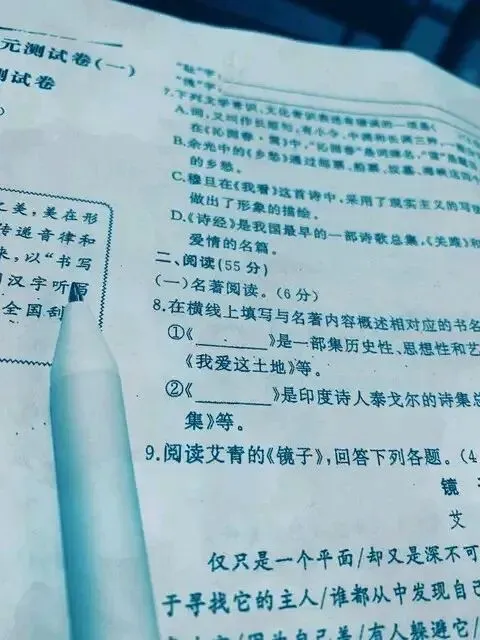 元测试卷(一)
测试卷
之美,美在形
传递音律和
来,以“书写
汉字听写
全国刮
“耻”字:
7.下列文学常识、文化常识表述有错误的一项是(
A.词,又叫作长短句,有小令、中调和长调三种,
在《沁园春·雪》中,“沁园春”是词牌名,“雪”是
B.余光中的《乡愁》通过邮票、船票、坟墓、海峡这四
的乡愁。
C.穆旦在《我看》这首诗中,采用了现实主义的写
做出了形象的描绘。
D.《诗经》是我国最早的一部诗歌总集,《关雎》和
爱情的名篇。
二、阅读(55分)
(一)名著阅读。(6分)
8.在横线上填写与名著内容概述相对应的书名
①《________》是一部集历史性、思想性和艺
《我爱这土地》等。
②《________》是印度诗人泰戈尔的诗集总
集》等。
9.阅读艾青的《镜子》,回答下列各题。(4
镜
艾
仅只是一个平面/却又是深不可
于寻找它的主人/谁都从中发现自己
因为自己美/有人躲避它/